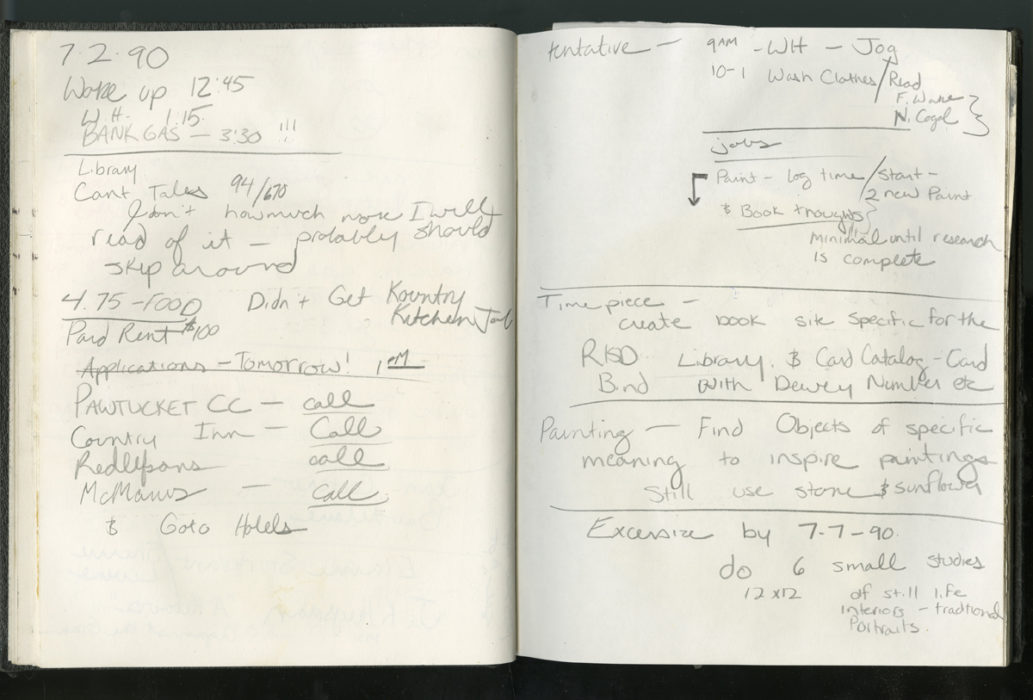 7.2.90
Wake up 12:45
W.H. 1.15.
BANK GAS — 3:30 !!!
Library
Cant Tales 94/670
I don't how much more I will
read of it — probably should
skip around
4.75 - FOOD Didn't Get Kountry
Kitchen Job
Paid Rent $100
Applications — Tomorrow! 1 PM
PAWTUCKET CC — call
Country Inn — Call
call
McManus — call
& Goto Hotels
tentative — 9AM - WH — Jog
10-1 Wash Clothes / Read
F. Wake
N. Gogol
jobs
Paint - Log time / Start -
2 new Paint
& Book thougs
minimal until research
is complete
Time piece —
create book site specific for the
RISD Library. & Card Catalog - Card
Bind with Dewey Number etc
Painting — Find Objects of specific
meaning to inspire paintings
Still use stone & sunflower
Excersize by 7-7-90.
do 6 small studies
12x12 of still life
interiors - tradtional
Portraits.